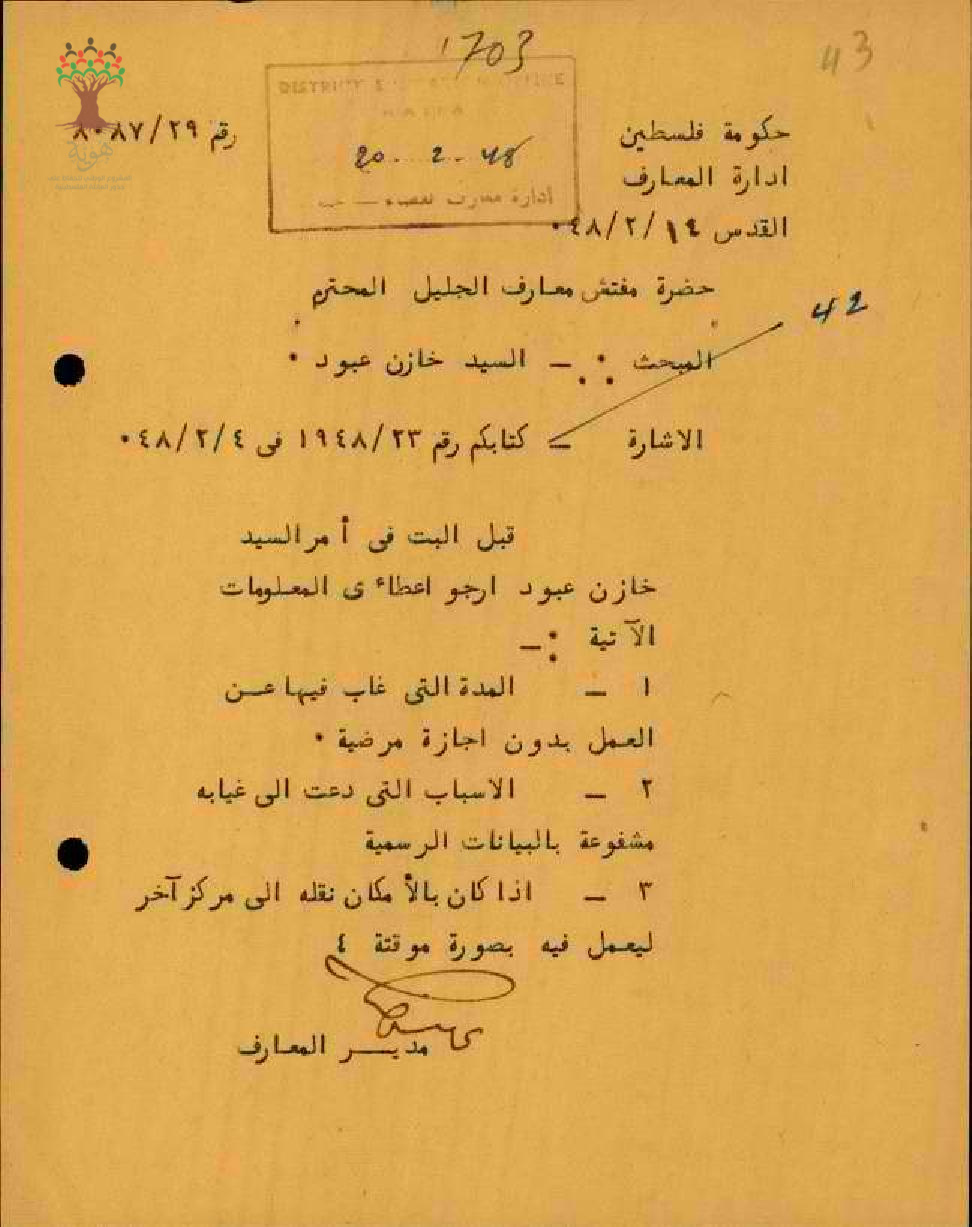 1703
43
DISTRICT EDUCATION OFFICE
20. 2. 48
ادارة معارف
هوية
حكومة فلسطين رقم ٨٠٨٧/٢٩
ادارة المعارف
القدس ١٤/٢/٤٨٠
حضرة مفتش معارف الجليل المحترم
42
المبحث :ـ السيد خازن عبود ٠
الاشارة ـ كتابكم رقم ١٩٤٨/٢٣ فى ٤٨/٢/٤٠
قبل البت فى أمر السيد
خازن عبود ارجو اعطاءى المعلومات
الآتية :ـ
١ ـ المدة التى غاب فيها عن
العمل بدون اجازة مرضية ٠
٢ ـ الاسباب التى دعت الى غيابه
مشفوعة بالبيانات الرسمية
٣ ـ اذا كان بالأمكان نقله الى مركز آخر
ليعمل فيه بصورة موقتة ٤
مديـــر المعارف